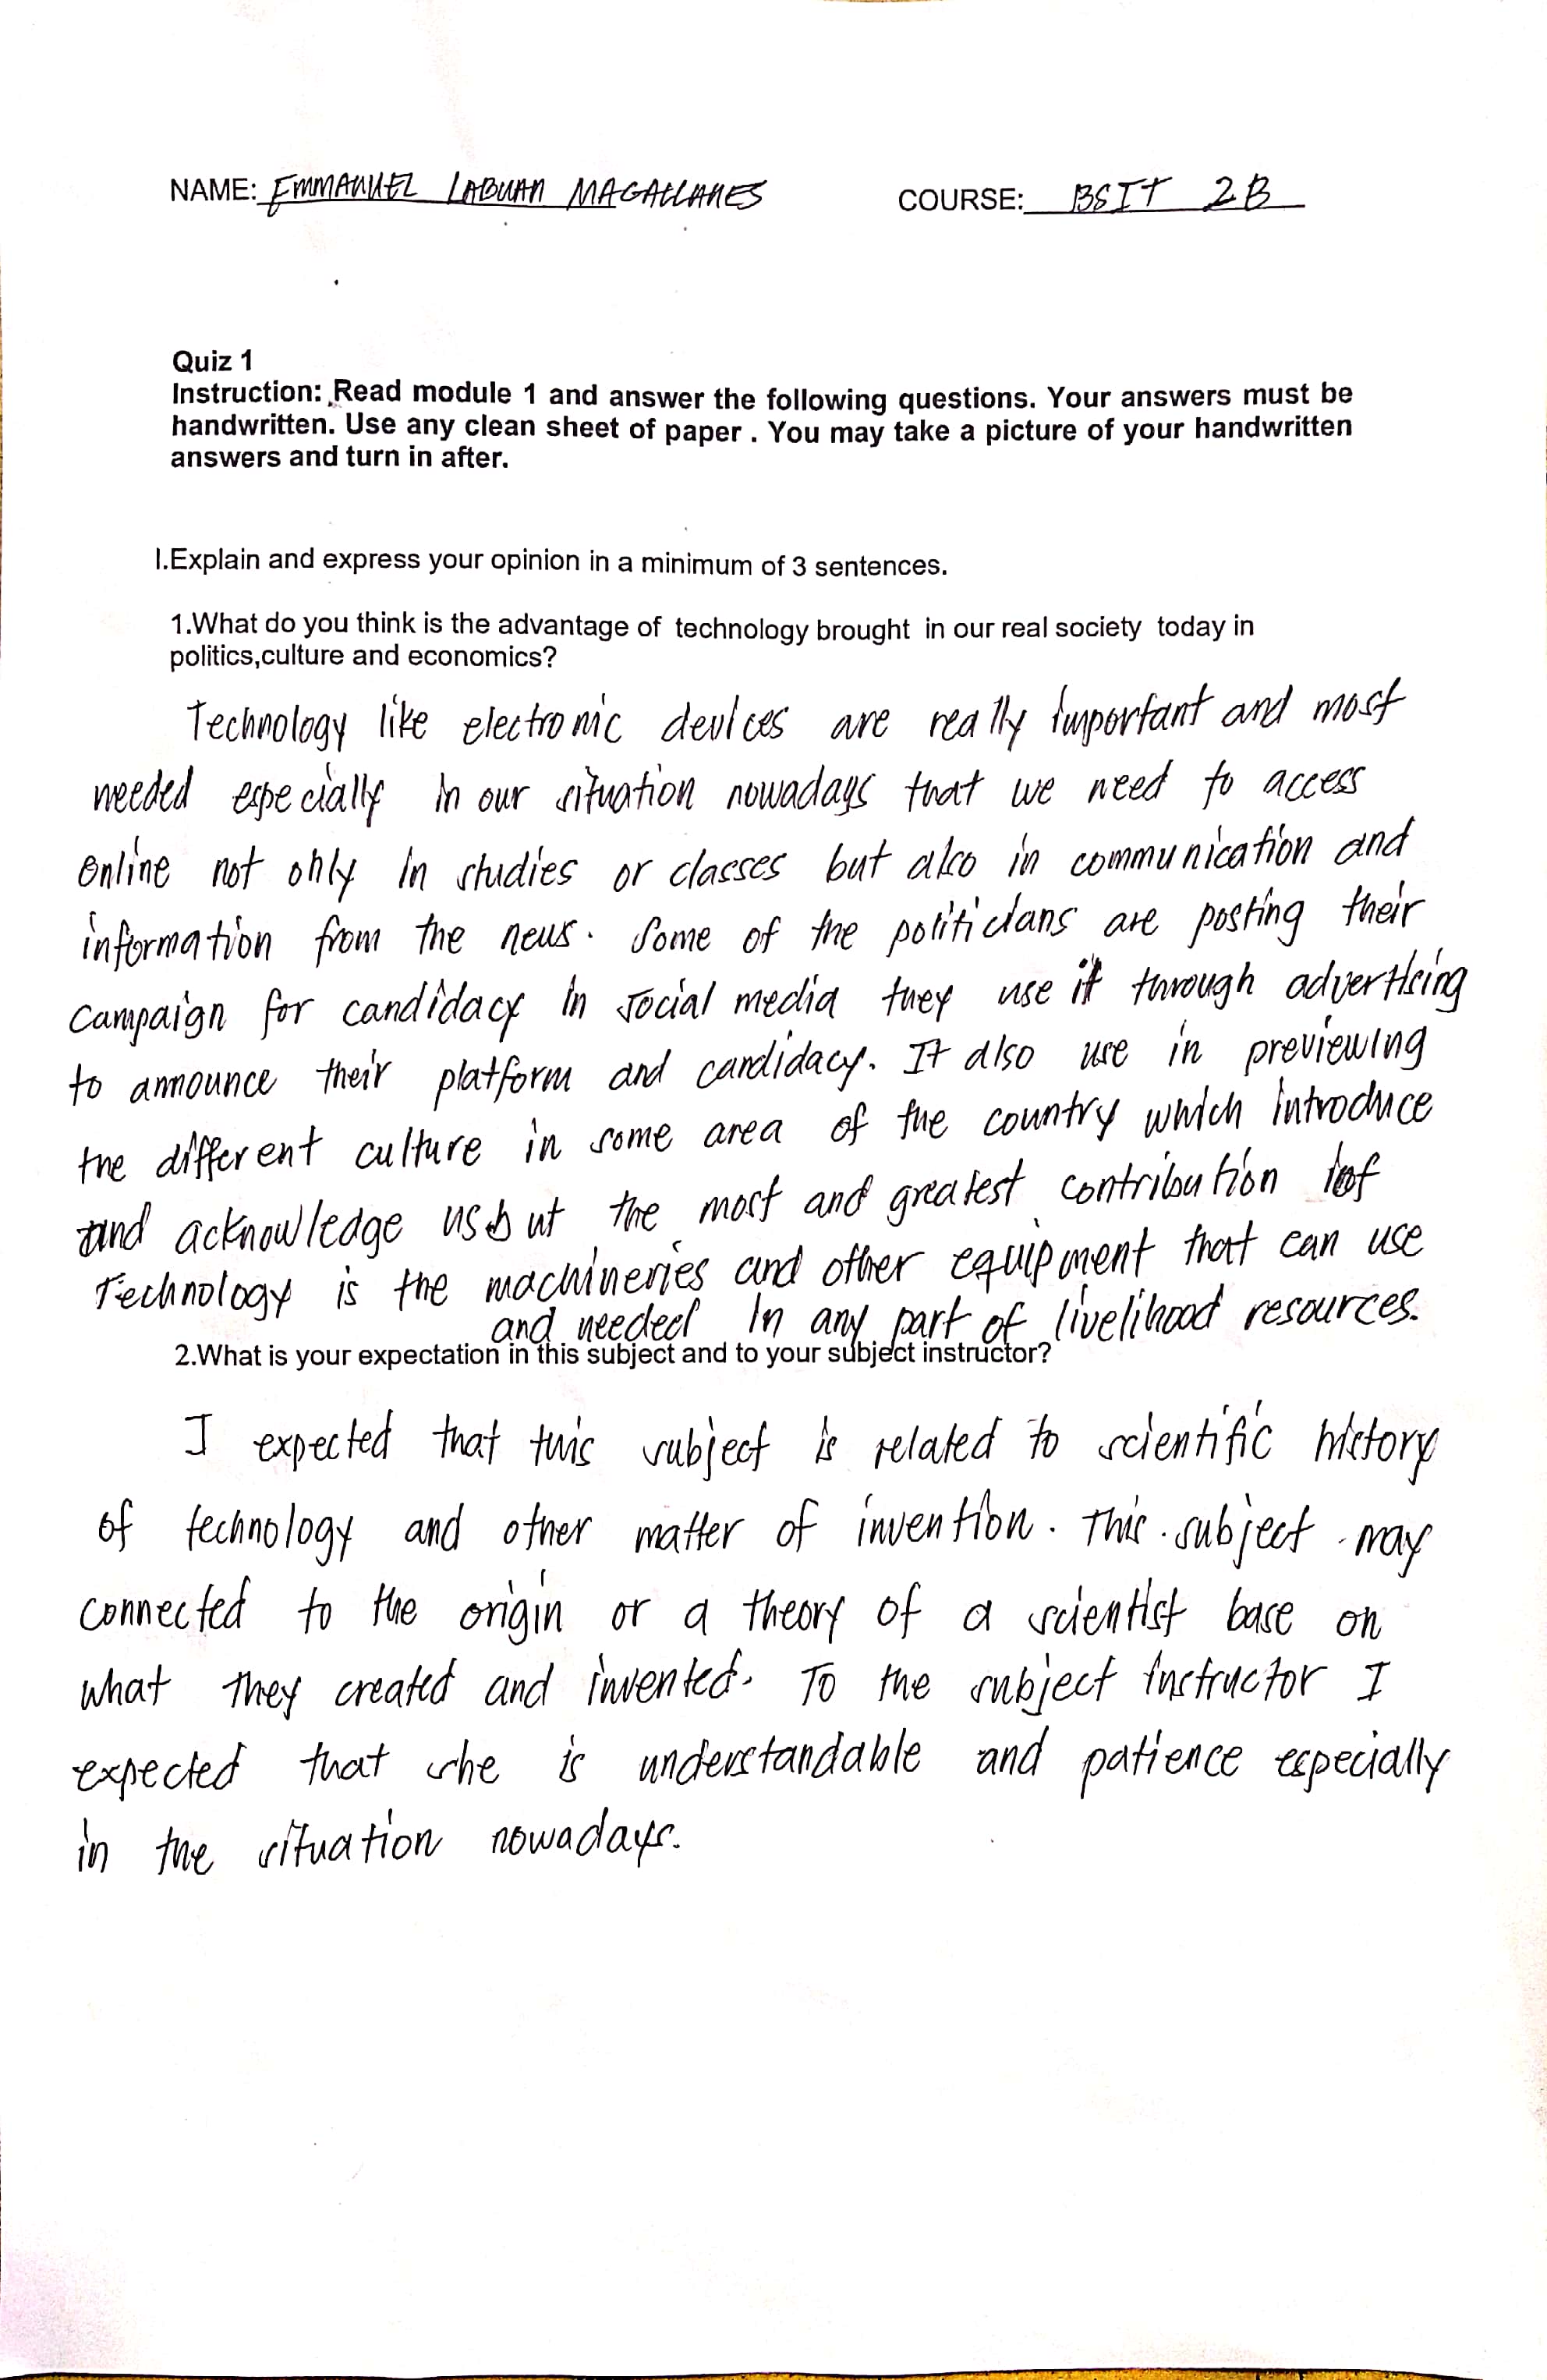 NAME: EMMANUEL LABUAN MAGALLANES COURSE: BSIT 2B
Quiz 1
Instruction: Read module 1 and answer the following questions. Your answers must be
handwritten. Use any clean sheet of paper . You may take a picture of your handwritten
answers and turn in after.
I.Explain and express your opinion in a minimum of 3 sentences.
1.What do you think is the advantage of technology brought in our real society today in
politics,culture and economics?
Technology like electronic devices are really important and most
needed especially in our situation nowadays that we need to access
online not only in studies or classes but also in communication and
information from the news. Some of the politicians are posting their
campaign for candidacy in social media they use it through advertising
to announce their platform and candidacy. It also use in previewing
the different culture in some area of the country which introduce
and acknowledge us but the most and greatest contribution of
Technology is the machineries and other equipment that can use
and needed in any part of livelihood resources.
2.What is your expectation in this subject and to your subject instructor?
I expected that this subject is related to scientific history
of technology and other matter of invention. This subject may
connected to the origin or a theory of a scientist base on
what they created and invented. To the subject instructor I
expected that she is understandable and patience especially
in the situation nowadays.